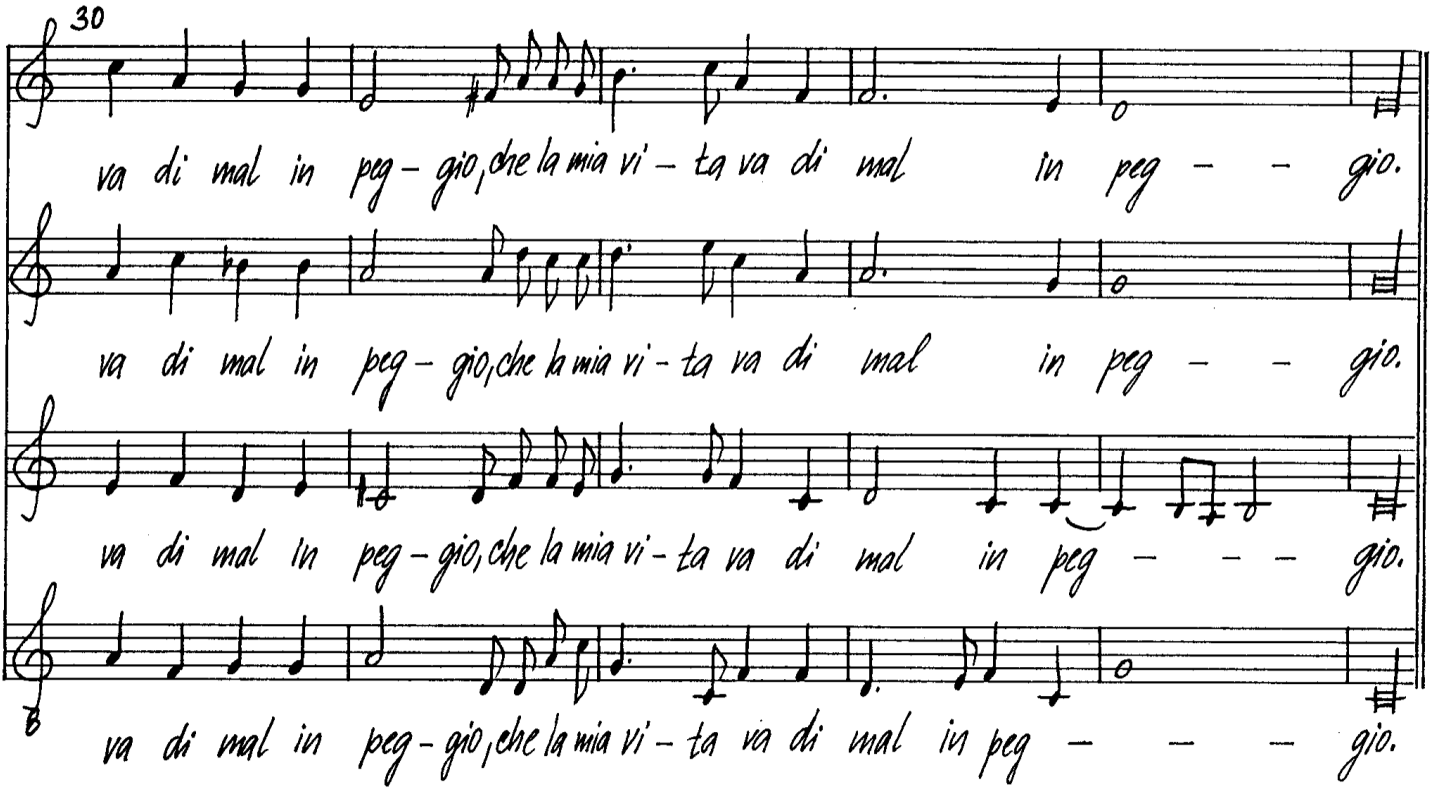 30
va di mal in peg - gio, che la mia vi - ta va di mal in peg - - gio.
va di mal in peg - gio, che la mia vi - ta va di mal in peg - - gio.
va di mal in peg - gio, che la mia vi - ta va di mal in peg - - - gio.
8
va di mal in peg - gio, che la mia vi - ta va di mal in peg - - - gio.